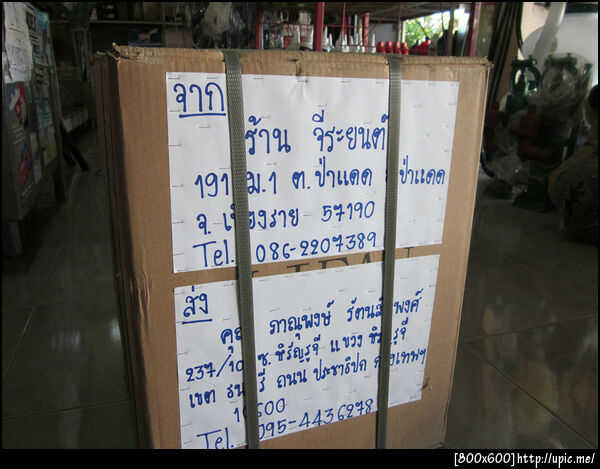 จาก
ร้าน จีระยนต์
191 ม.1 ต.ป่าแดด ป่าแดด
จ. เชียงราย 57190
Tel. 086-2207389
ส่ง
คุณ ภาณุพงษ์
237/10 ซ. หิรัญรูจี แขวง หิรัญรูจี
เขต ธนบุรี ถนน ประชาธิปก กรุงเทพฯ
10600
Tel. 095-4436278
[800x600] http://upic.me/